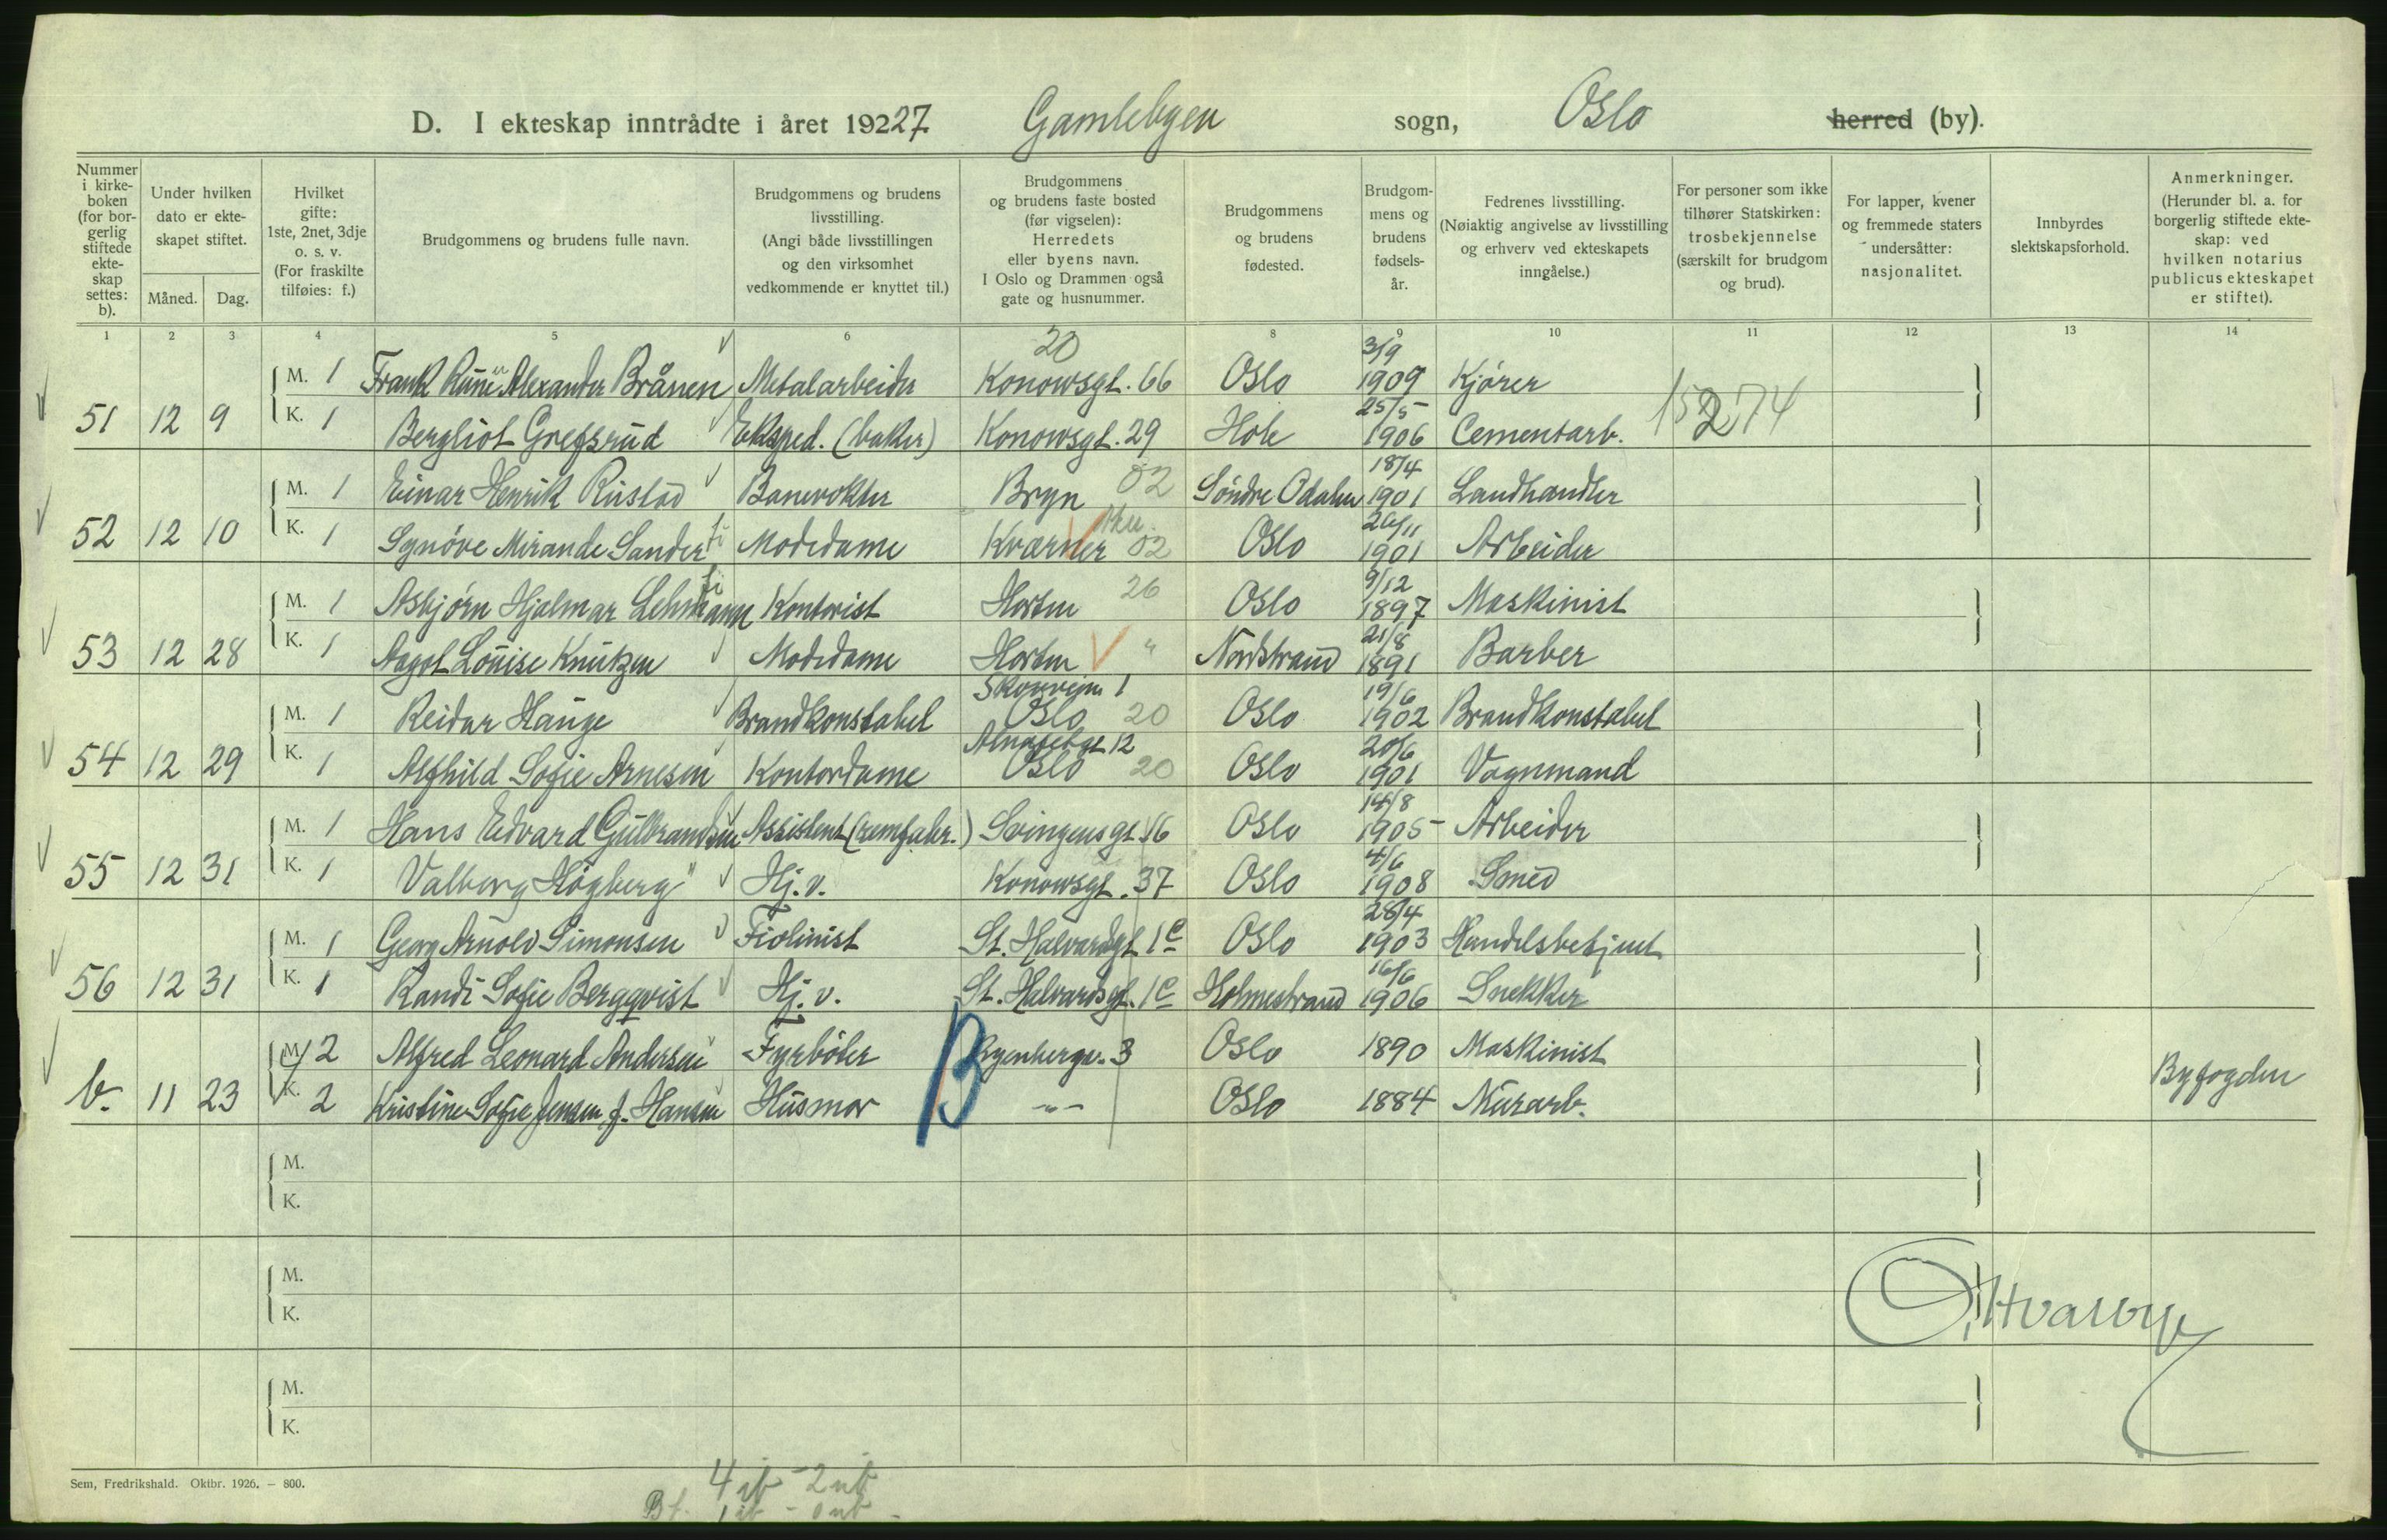 D. I ekteskap inntrådte i året 19227 Gamlebyen sogn, Oslo herred (by).
Nummer i kirke-boken (for bor-gerlig stiftede ekte-skap settes: b).
Under hvilken dato er ekte-skapet stiftet.
Måned. Dag.
Hvilket gifte: 1ste, 2net, 3dje o. s. v. (For fraskilte tilføies: f.)
Brudgommens og brudens fulle navn.
Brudgommens og brudens livsstilling. (Angi både livsstillingen og den virksomhet vedkommende er knyttet til.)
Brudgommens og brudens faste bosted (før vigselen): Herredets eller byens navn. I Oslo og Drammen også gate og husnummer.
Brudgommens og brudens fødested.
Brudgom-mens og brudens fødsels-år.
Fedrenes livsstilling. (Nøiaktig angivelse av livsstilling og erhverv ved ekteskapets inngåelse.)
For personer som ikke tilhører Statskirken: trosbekjennelse (særskilt for brudgom og brud).
For lapper, kvener og fremmede staters undersåtter: nasjonalitet.
Innbyrdes slektskapsforhold.
Anmerkninger. (Herunder bl. a. for borgerlig stiftede ekte-skap: ved hvilken notarius publicus ekteskapet er stiftet).
1 2 3 4 5 6 8 9 10 11 12 13 14
20 3/9
M. 1 Frank Rune Alexander Brånen Metalarbeider Konowsgt. 66 Oslo 1909 Kjører
51 12 9 K. 1 Bergliot Grefsrud Eksped. (baker) Konowsgt. 29 Hole 25/5 1906 Cementarb. 15274
M. 1 Einar Henrik Rustad Banevokter Bryn 02 Søndre Odalen 18/4 1901 Landhandler
52 12 10 K. 1 Synøve Mirande Sander Modedame Kværner 02 Oslo 26/11 1901 Arbeider
M. 1 Asbjørn Hjalmar Lehmann Kontorist Horten 26 Oslo 9/12 1897 Maskinist
53 12 28 K. 1 Aagot Louise Knutzen Modedame Horten " Nordstrand 21/8 1891 Barber
M. 1 Reidar Hauge Brandkonstabel Skovveien 1 Oslo 20 Oslo 19/6 1902 Brandkonstabel
54 12 29 K. 1 Alfhild Sofie Arnesen Kontordame 12 Oslo 20 Oslo 20/6 1901 Vognmand
M. 1 Hans Edvard Gulbrandsen Assistent (remfabr.) Svingens gt. 16 Oslo 14/8 1905 Arbeider
55 12 31 K. 1 Valborg Högberg Hj. v. Konowsgt. 37 Oslo 4/6 1908 Smed
M. 1 Georg Arnold Simonsen Fiolinist St. Halvardsgt. 1c Oslo 28/4 1903 Handelsbetjent
56 12 31 K. 1 Randi Sofie Bergqvist Hj. v. St. Halvardsgt. 1c Holmestrand 16/6 1906 Snekker
M. 2 Alfred Leonard Andersen Fyrbøter B Ryenbergv. 3 Oslo 1890 Maskinist
b. 11 23 K. 2 Kristine Sofie Jensen, f. Hansen Husmor -"- Oslo 1884 Murarb. Byfogden
M.
K.
M.
K.
M.
K.
Sem, Fredrikshald. Oktbr. 1926. – 800.
4 ib - 2 ub
Bf. 1 ib - 0 ub -